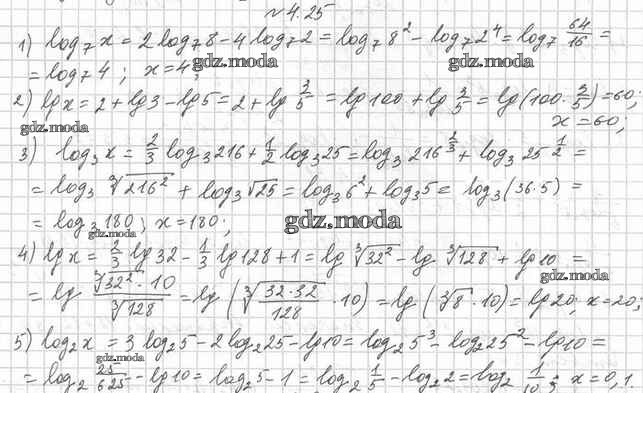 №4.25
1) log₇x = 2log₇8 - 4log₇2 = log₇8² - log₇2⁴ = log₇ 64/16 =
= log₇4; x=4;
gdz.moda
2) lg x = 2 + lg3 - lg5 = 2 + lg 3/5 = lg100 + lg 3/5 = lg(100 · 3/5) = 60;
gdz.moda x = 60;
3) log₃x = 2/3 log₃216 + 1/2 log₃25 = log₃216^(2/3) + log₃25^(1/2) =
= log₃ ∛216² + log₃√25 = log₃6² + log₃5 = log₃(36·5) =
= log₃180; x=180;
gdz.moda gdz.moda
4) lg x = 2/3 lg32 - 1/3 lg128 + 1 = lg ∛32² - lg ∛128 + lg10 =
gdz.moda
= lg ∛32² · 10 / ∛128 = lg(∛(32·32/128) · 10) = lg(∛8 · 10) = lg20; x=20;
5) log₂x = 3log₂5 - 2log₂25 - lg10 = log₂5³ - log₂25² - lg10 =
gdz.moda
= log₂ /625 - lg10 = log₂5 - 1 = log₂ 1/5 - log₂2 = log₂ 1/10; x=0,1.